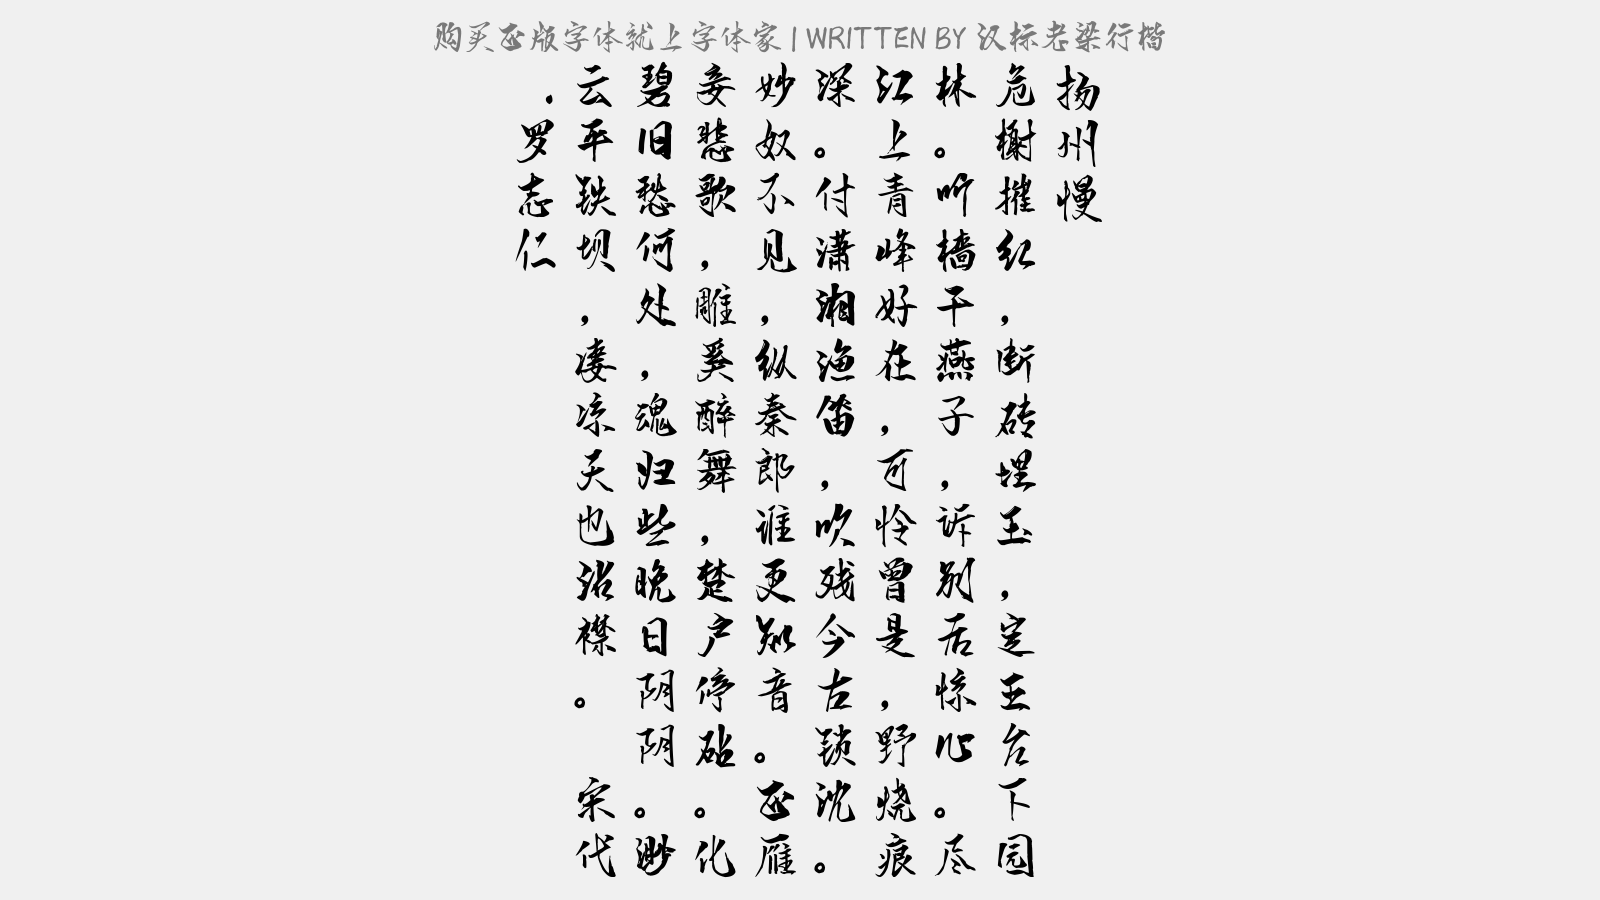 购买正版字体就上字体家 | WRITTEN BY 汉标老梁行楷
扬州慢
危榭摧红，断砖埋玉，定王台下园
林。听樯干燕子，诉别后惊心。尽
江上青峰好在，可怜曾是，野烧痕
深。付潇湘渔笛，吹残今古锁沈。
妙奴不见，纵秦郎谁更知音。正雁
妾悲歌，雕奚醉舞，楚户停砧。化
碧旧愁何处，魂归些晚日阴阴。渺
云平铁坝，凄凉天也沾襟。 宋代
.罗志仁